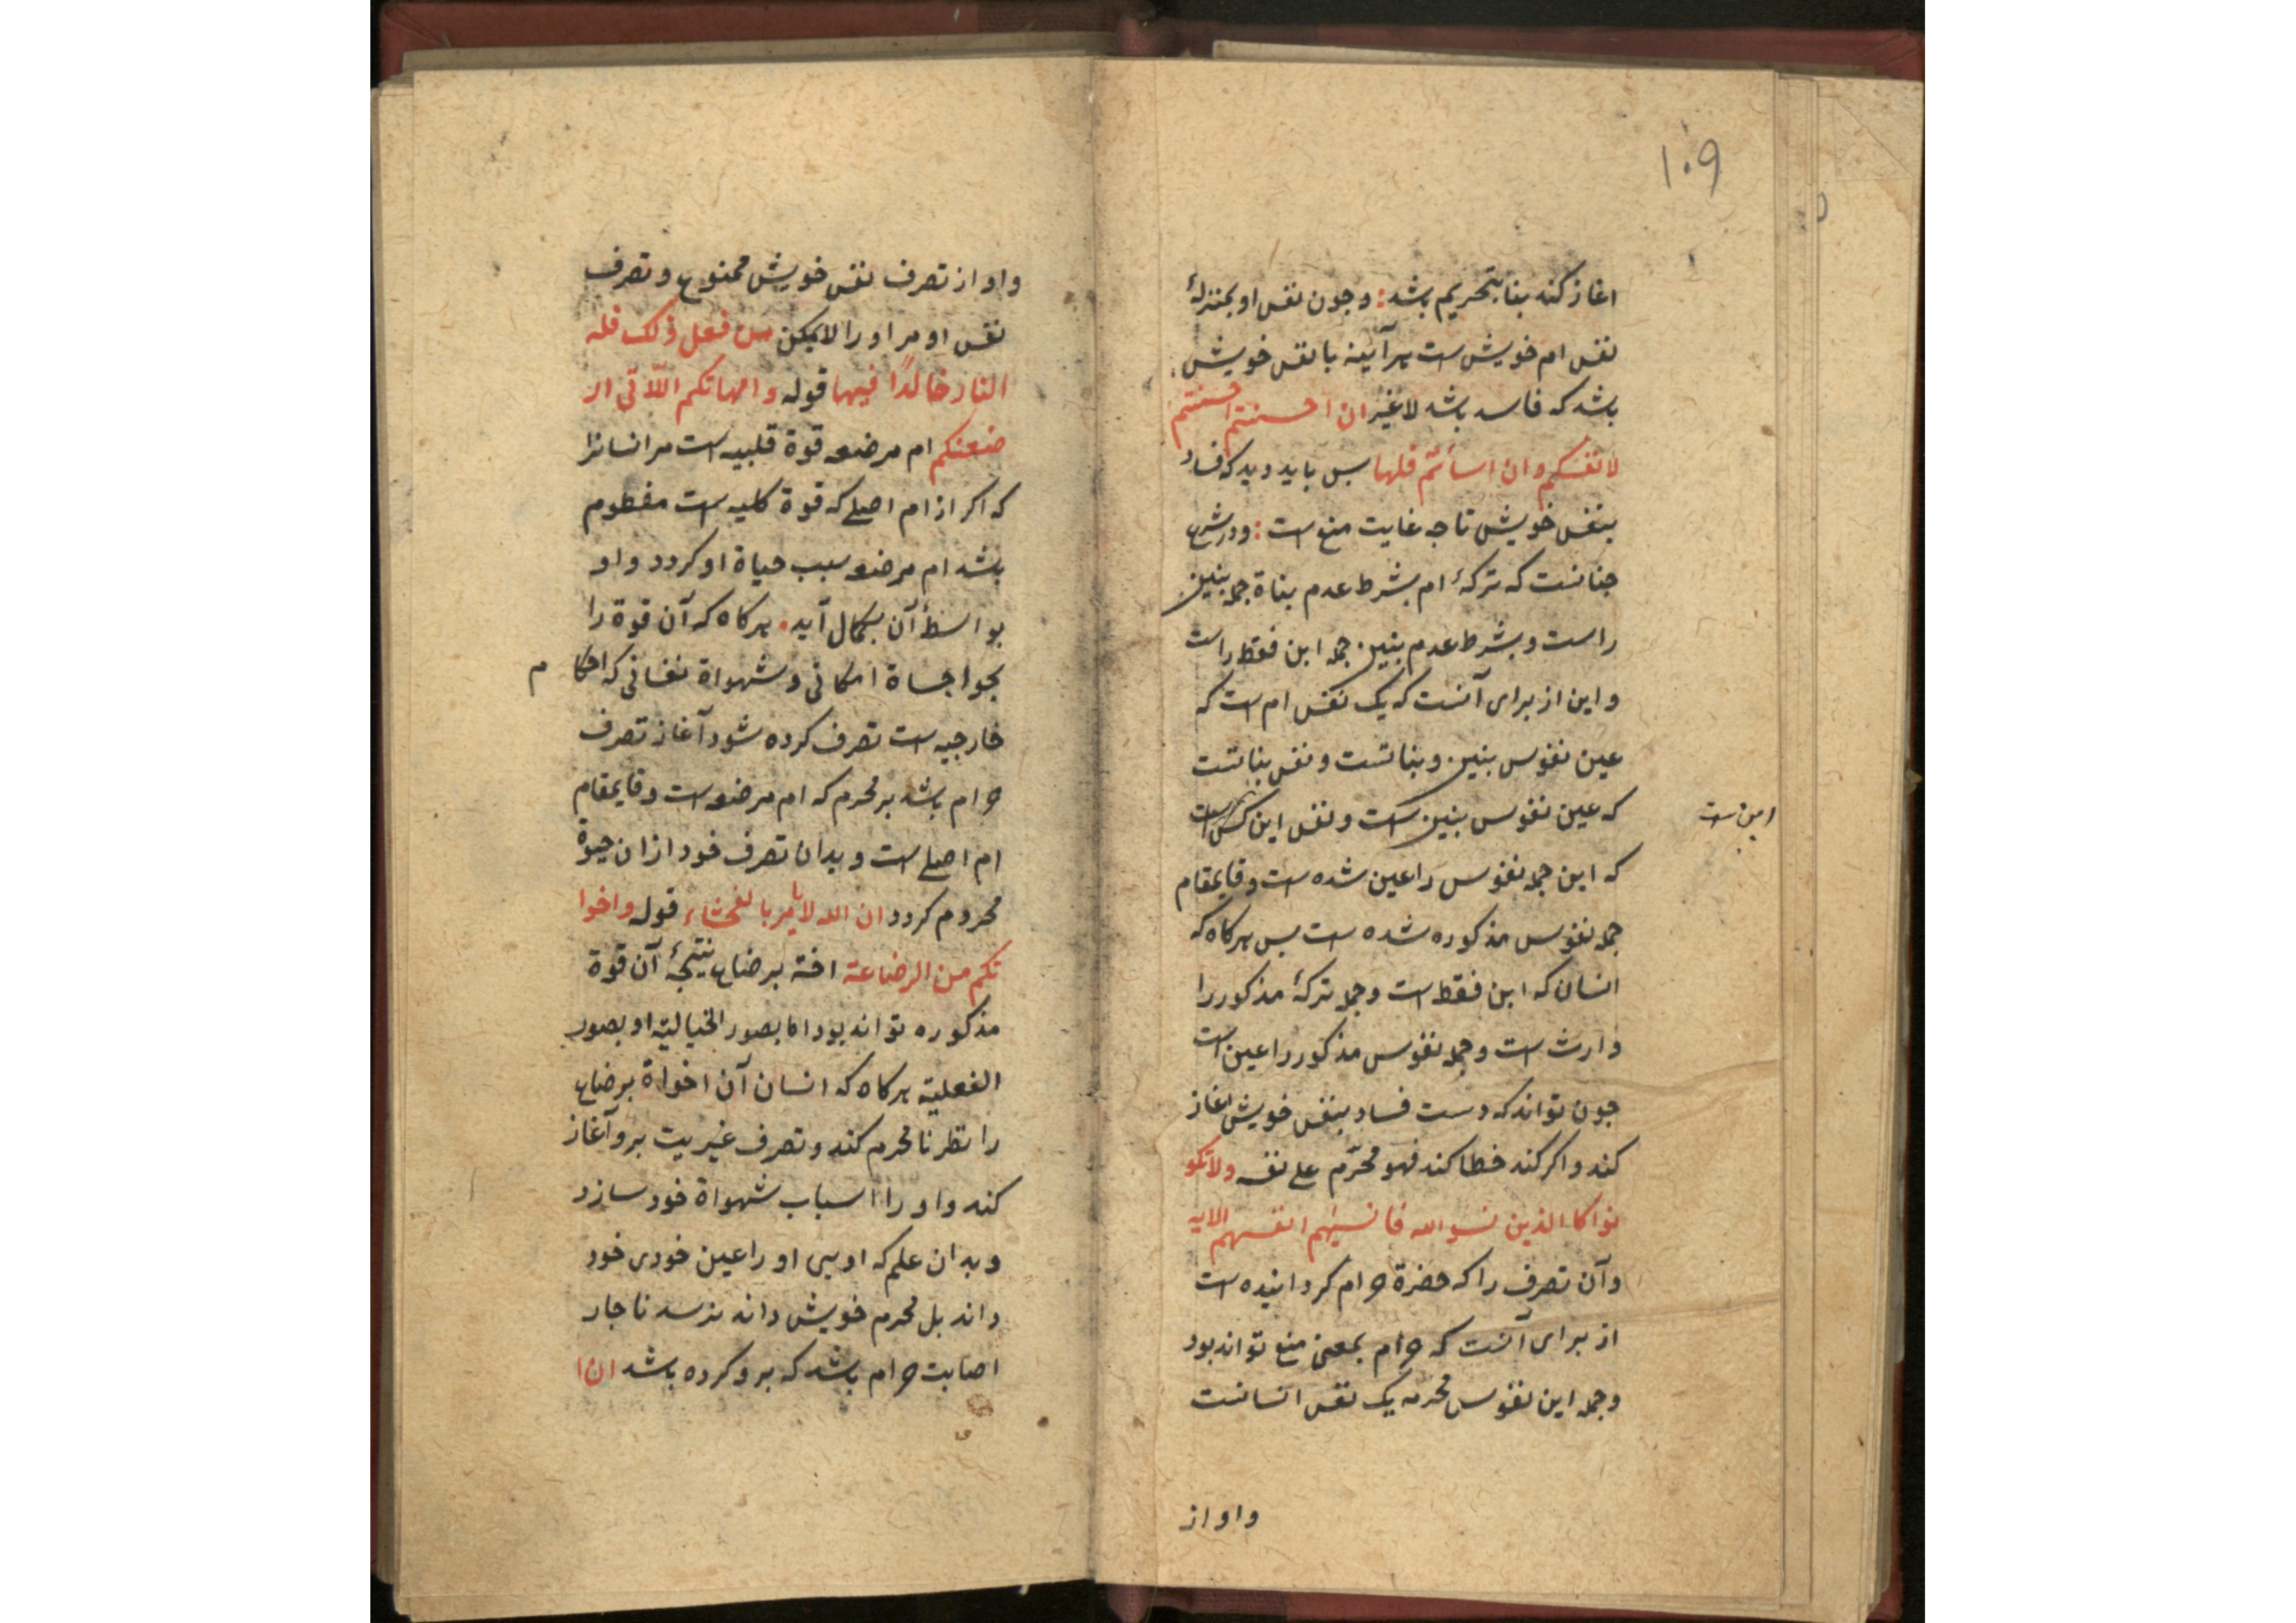 ۱۰۹
اغاز کند بنا بتحریم باشد: و جون نفس او بمنزلهٔ
نفس ام خویش است هرآینه با نفس خویش
باشد که فاسد باشد لا غیر ان احسنتم احسنتم
لانفسکم و ان اسأتم فلها بس باید دید که فساد
بنفس خویش تا جه غایت منع است: و در شرع
جنانست که ترکهٔ ام بشرط عدم بناة جمله بنین
راست و بشرط عدم بنین جمله ابن فقط راست
و این از برای آنست که یک نفس ام است که
عین نفوس بنین و بناتست و نفس بناتست
که عین نفوس بنین است و نفس این کس است
ابن است
که این جمله نفوس را عین شده است و قایمقام
جمله نفوس مذکوره شده است بس هرکاه که
انسان که ابن فقط است و جمله ترکهٔ مذکور را
وارث است و جمله نفوس مذکور را عین است
جون تواند که دست فساد بنفس خویش اغاز
کند و اکر کند خطا کند فهو محرّم علی نفسه ولا تکو
نوا کاالذین نسوا الله فانسیٰهم انفسهم الایه
و آن تصرف را که حضرة حرام کردانیده است
از برای آنست که حرام بمعنی منع تواند بود
و جمله این نفوس محرمه یک نفس انسانست
و او از
و او از تصرف نفس خویش ممنوع و تصرف
نفس او مر او را لایمکن من فعل ذلک فله
النار خالدًا فیها قوله و امهاتکم اللّاتی ار
ضعنکم ام مرضعه قوة قلبیه است مر انسانرا
که اکر از ام اصلی که قوة کلیه است مفطوم
باشد ام مرضعه سبب حیاة او کردد و او
بواسطهٔ آن بکمال آید. هرکاه که آن قوة را
بحواجساة امکانی و شهواة نفسانی که احکام
خارجیه است تصرف کرده شود آغاز تصرف
حرام باشد بر محرم که ام مرضعه است و قایمقام
ام اصلی است و بدان تصرف خود از ان حیوة
محروم کردد ان الله لا یامر بالفحشاء قوله و اخوا
تکم من الرضاعة اخته برضاع نتیجهٔ آن قوة
مذکوره تواند بود اما بصور الخیالیّة او بصور
الفعلیّة هرکاه که انسان آن اخواة برضاع
را نظر نامحرم کند و تصرف غیریت برو آغاز
کند و او را اسباب شهواة خود سازد
و بدان علم که اوسی او را عین خودی خود
داند بل محرم خویش داند نرسد ناجار
اصابت حرام باشد که برو کرده باشد ان ا